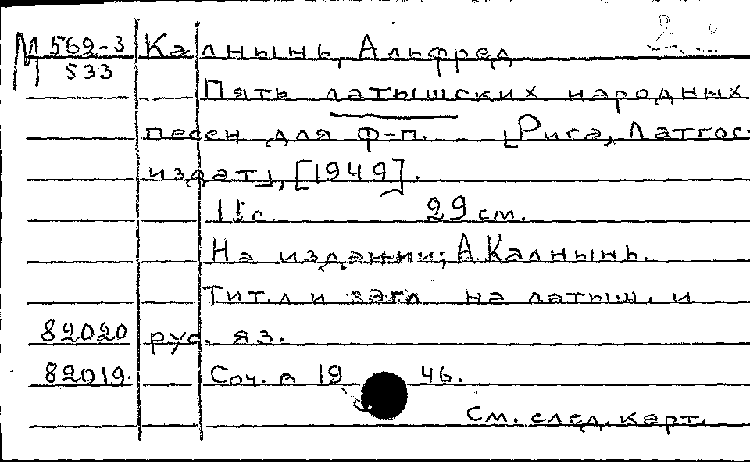 М 569-3 Калнынь, Альфред 2
533
Пять латышских народных
песен для ф-п. [Рига, Латгос-
издат], [1949].
11 с. 29 см.
На издании: А. Калнынь.
Тит. л и загл на латыш. и
82020 рус. яз.
82019 Соч. в 1946.
См. след. карт.